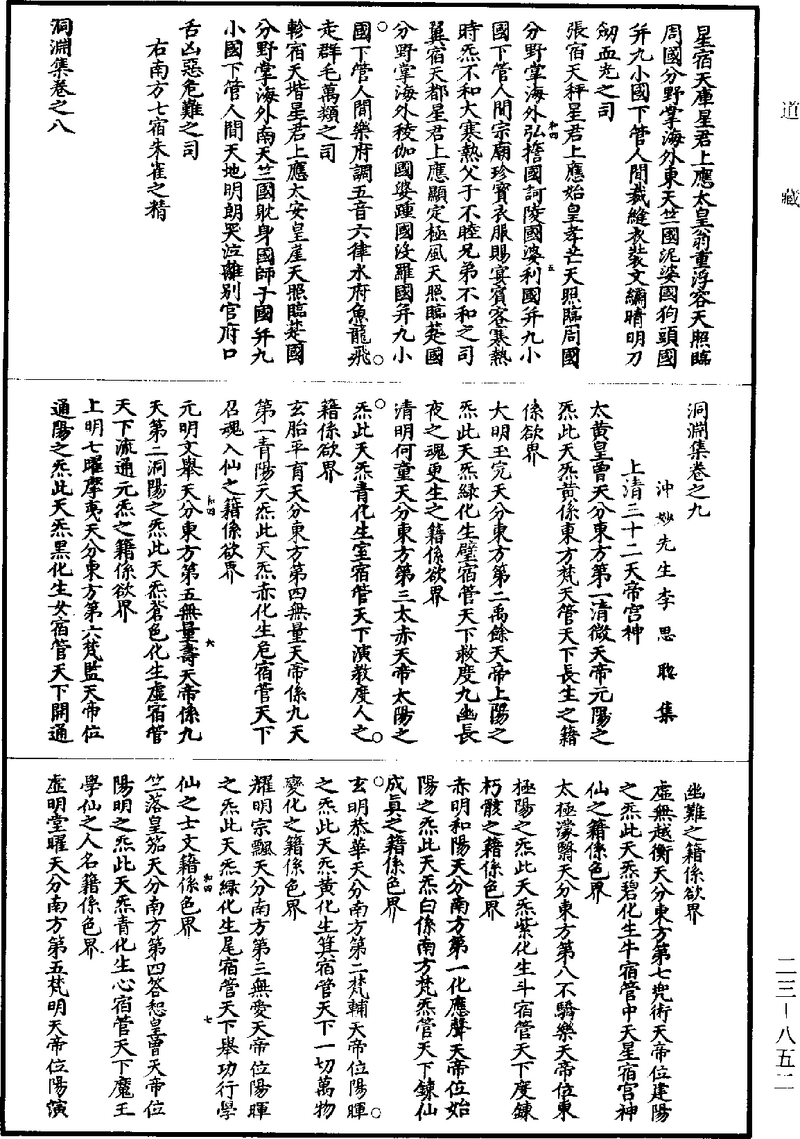 道藏
星宿天庫星君上應太皇翁重浮容天照臨
周國分野掌海外東天竺國泥婆國狗頭國
并九小國下管人間裁縫衣裝文繡晴明刀
劒血光之司
張宿天秤星君上應始皇孝芒天照臨周國
分野掌海外弘擔國訶陵國婆利國并九小
國下管人間宗廟珍寶衣服賜宴賓客寒熱
時炁不和大寒熱父子不睦兄弟不和之司
翼宿天都星君上應顯定極風天照臨楚國
分野掌海外稜伽國婆踵國沒羅國并九小
國下管人間樂府調五音六律水府魚龍飛
走群毛萬類之司
軫宿天堦星君上應太安皇崖天照臨楚國
分野掌海外南天竺國躭身國師子國并九
小國下管人間天地明朗哭泣離別官府口
舌凶惡危難之司
右南方七宿朱雀之精
洞淵集卷之八
洞淵集卷之九
沖妙先生李思聰集
上清三十二天帝宫神
太黄皇曾天分東方第一清微天帝元陽之
炁此天炁黄係東方梵天管天下長生之籍
係欲界
大明玉完天分東方第二禹餘天帝上陽之
炁此天炁綠化生壁宿管天下救度九幽長
夜之魂更生之籍係欲界
清明何童天分東方第三太赤天帝太陽之
炁此天炁青化生室宿管天下演教度人之
籍係欲界
玄胎平育天分東方第四無量天帝係九天
第一青陽天炁此天炁赤化生危宿管天下
召魂入仙之籍係欲界
元明文舉天分東方第五無量壽天帝係九
天第二洞陽之炁此天炁蒼色化生虚宿管
天下流通元炁之籍係欲界
上明七曜摩夷天分東方第六梵監天帝位
通陽之炁此天炁黑化生女宿管天下開通
幽難之籍係欲界
虚無越衡天分東方第七兜術天帝位建陽
之炁此天炁碧化生牛宿管中天星宿宫神
仙之籍係色界
太極濛翳天分東方第八不驕樂天帝位東
極陽之炁此天炁紫化生斗宿管天下度鍊
朽骸之籍係色界
赤明和陽天分南方第一化應聲天帝位始
陽之炁此天炁白係南方梵炁管天下鍊仙
成真之籍係色界
玄明恭華天分南方第二梵輔天帝位陽暉
之炁此天炁黄化生箕宿管天下一切萬物
變化之籍係色界
耀明宗飄天分南方第三無愛天帝位陽暉
之炁此天炁綠化生尾宿管天下舉功行學
仙之士文籍係色界
竺落皇笳天分南方第四答恕皇曾天帝位
陽明之炁此天炁青化生心宿管天下魔王
學仙之人名籍係色界
虚明堂曜天分南方第五梵明天帝位陽演
二三－八五二